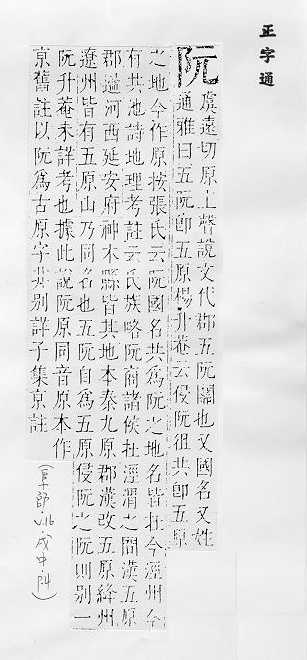 正字通
阮
虞遠切原上聲說文代郡五阮關也又國名又姓
通雅曰五阮卽五原楊升菴云侵阮徂共卽五原
之地今作原按張氏云阮國名共爲阮之地名皆在今涇州今
有共池詩地理考註云氏族略阮商諸侯在涇渭之閒漢五原
郡遍河西延安府神木縣皆其地本秦九原郡漢改五原絳州
遼州皆有五原山乃同名也五阮自爲五原侵阮之阮則別一
阮升菴未詳考也據此說阮原同音原本作
京舊註以阮爲古原字非別詳子集京註
(阜部 V.16 戌中 阡)